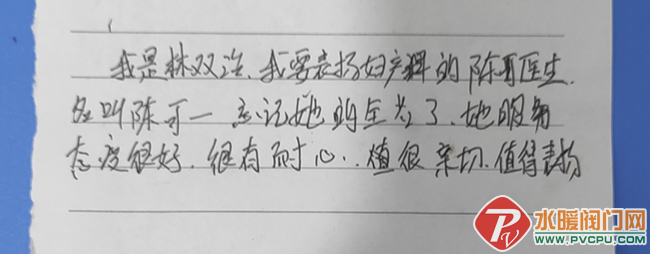 我是林双治.我要表扬妇产科的陈可医生.
名叫陈可一 忘记她的全名了.她服务
态度很好.很有耐心..很亲切.值得表扬
水暖阀门网
WWW.PVCPU.COM